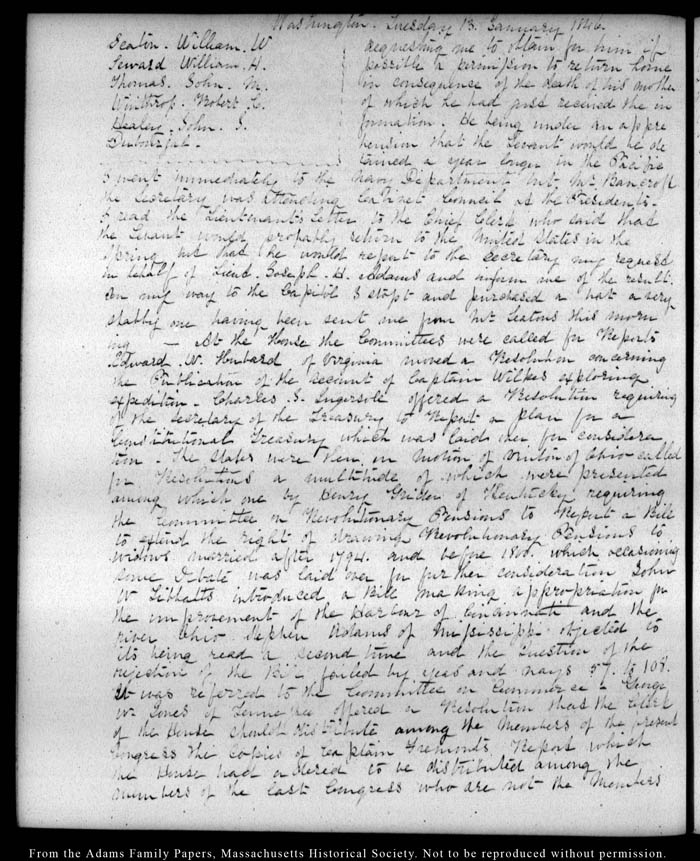 Washington. Tuesday 13. January 1846.
Seaton. William. W
Seward William. H.
Thomas. John. M.
Winthrop. Robert C.
Healey. John. S.
requesting me to obtain for him if
possible a permission to return home
in consequence of the death of his mother
of which he had just received the in
formation. He being under an appre
hension that the Levant would be de
tained a year longer in the Pacific
I went immediately to the Navy Department but Mr. Bancroft
the Secretary was attending Cabinet Council at the Presidents.
I read the Lieutenants Letter to the Chief Clerk who said that
the Levant would probably return to the United States in the
Spring but that he would report to the Secretary my request
in behalf of Lieut. Joseph. H. Adams and inform me of the result.
On my way to the Capitol I stopt and purchased a hat a very
shabby one having been sent me from Mr Seatons this morn
ing — At the House the Committees were called for Reports
Edward. W. Hubard of Virginia moved a Resolution concerning
the Publication of the account of Captain Wilkes exploring
expedition. Charles. J. Ingersoll offered a Resolution requiring
of the Secretary of the Treasury to Report a plan for a
Constitutional Treasury which was laid over for considera
tion. The States were then on motion of Vinton of Ohio called
for Resolutions a multitude of which were presented
among which one by Henry Grider of Kentucky requiring
the Committee on Revolutionary Pensions to Report a Bill
to extend the right of drawing Revolutionary Pensions to
widows married after 1794. and before 1800. which occasioning
some Debate was laid over for further consideration John
W Tibbatts introduced a Bill making appropriation for
the improvement of the Harbour of Cincinnati and the
river Ohio Stephen Adams of Mississippi objected to
its being read a second time and the Question of the
rejection of the Bill failed by yeas and nays 57. to 108.
It was referred to the Committee on Commerce George
W. Jones of Tennessee offered a Resolution that the Clerk
of the House should distribute among the Members of the present
Congress the Copies of Captain Fremonts Report which
the House had ordered to be distributed among the
members of the last Congress who are not the Members
From the Adams Family Papers, Massachusetts Historical Society. Not to be reproduced without permission.